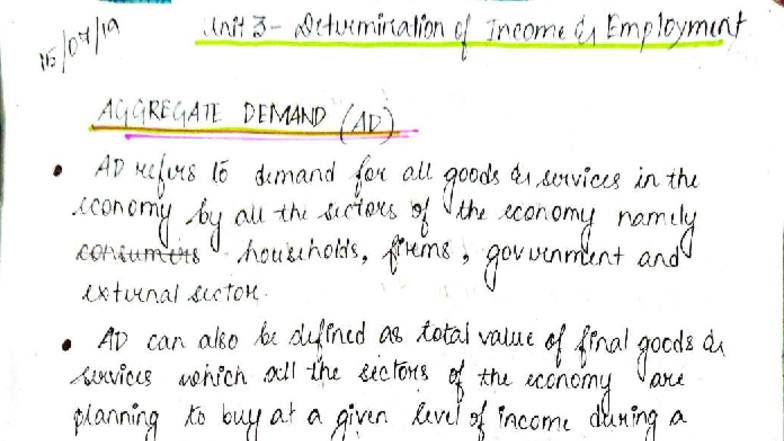 15/07/19
Unit 3 - Determination of Income & Employment
AGGREGATE DEMAND (AD)
• AD refers to demand for all goods & services in the
economy by all the sectors of the economy namely
consumers households, firms, government and
external sector.
• AD can also be defined as total value of final goods &
services which all the sectors of the economy are
planning to buy at a given level of income during a